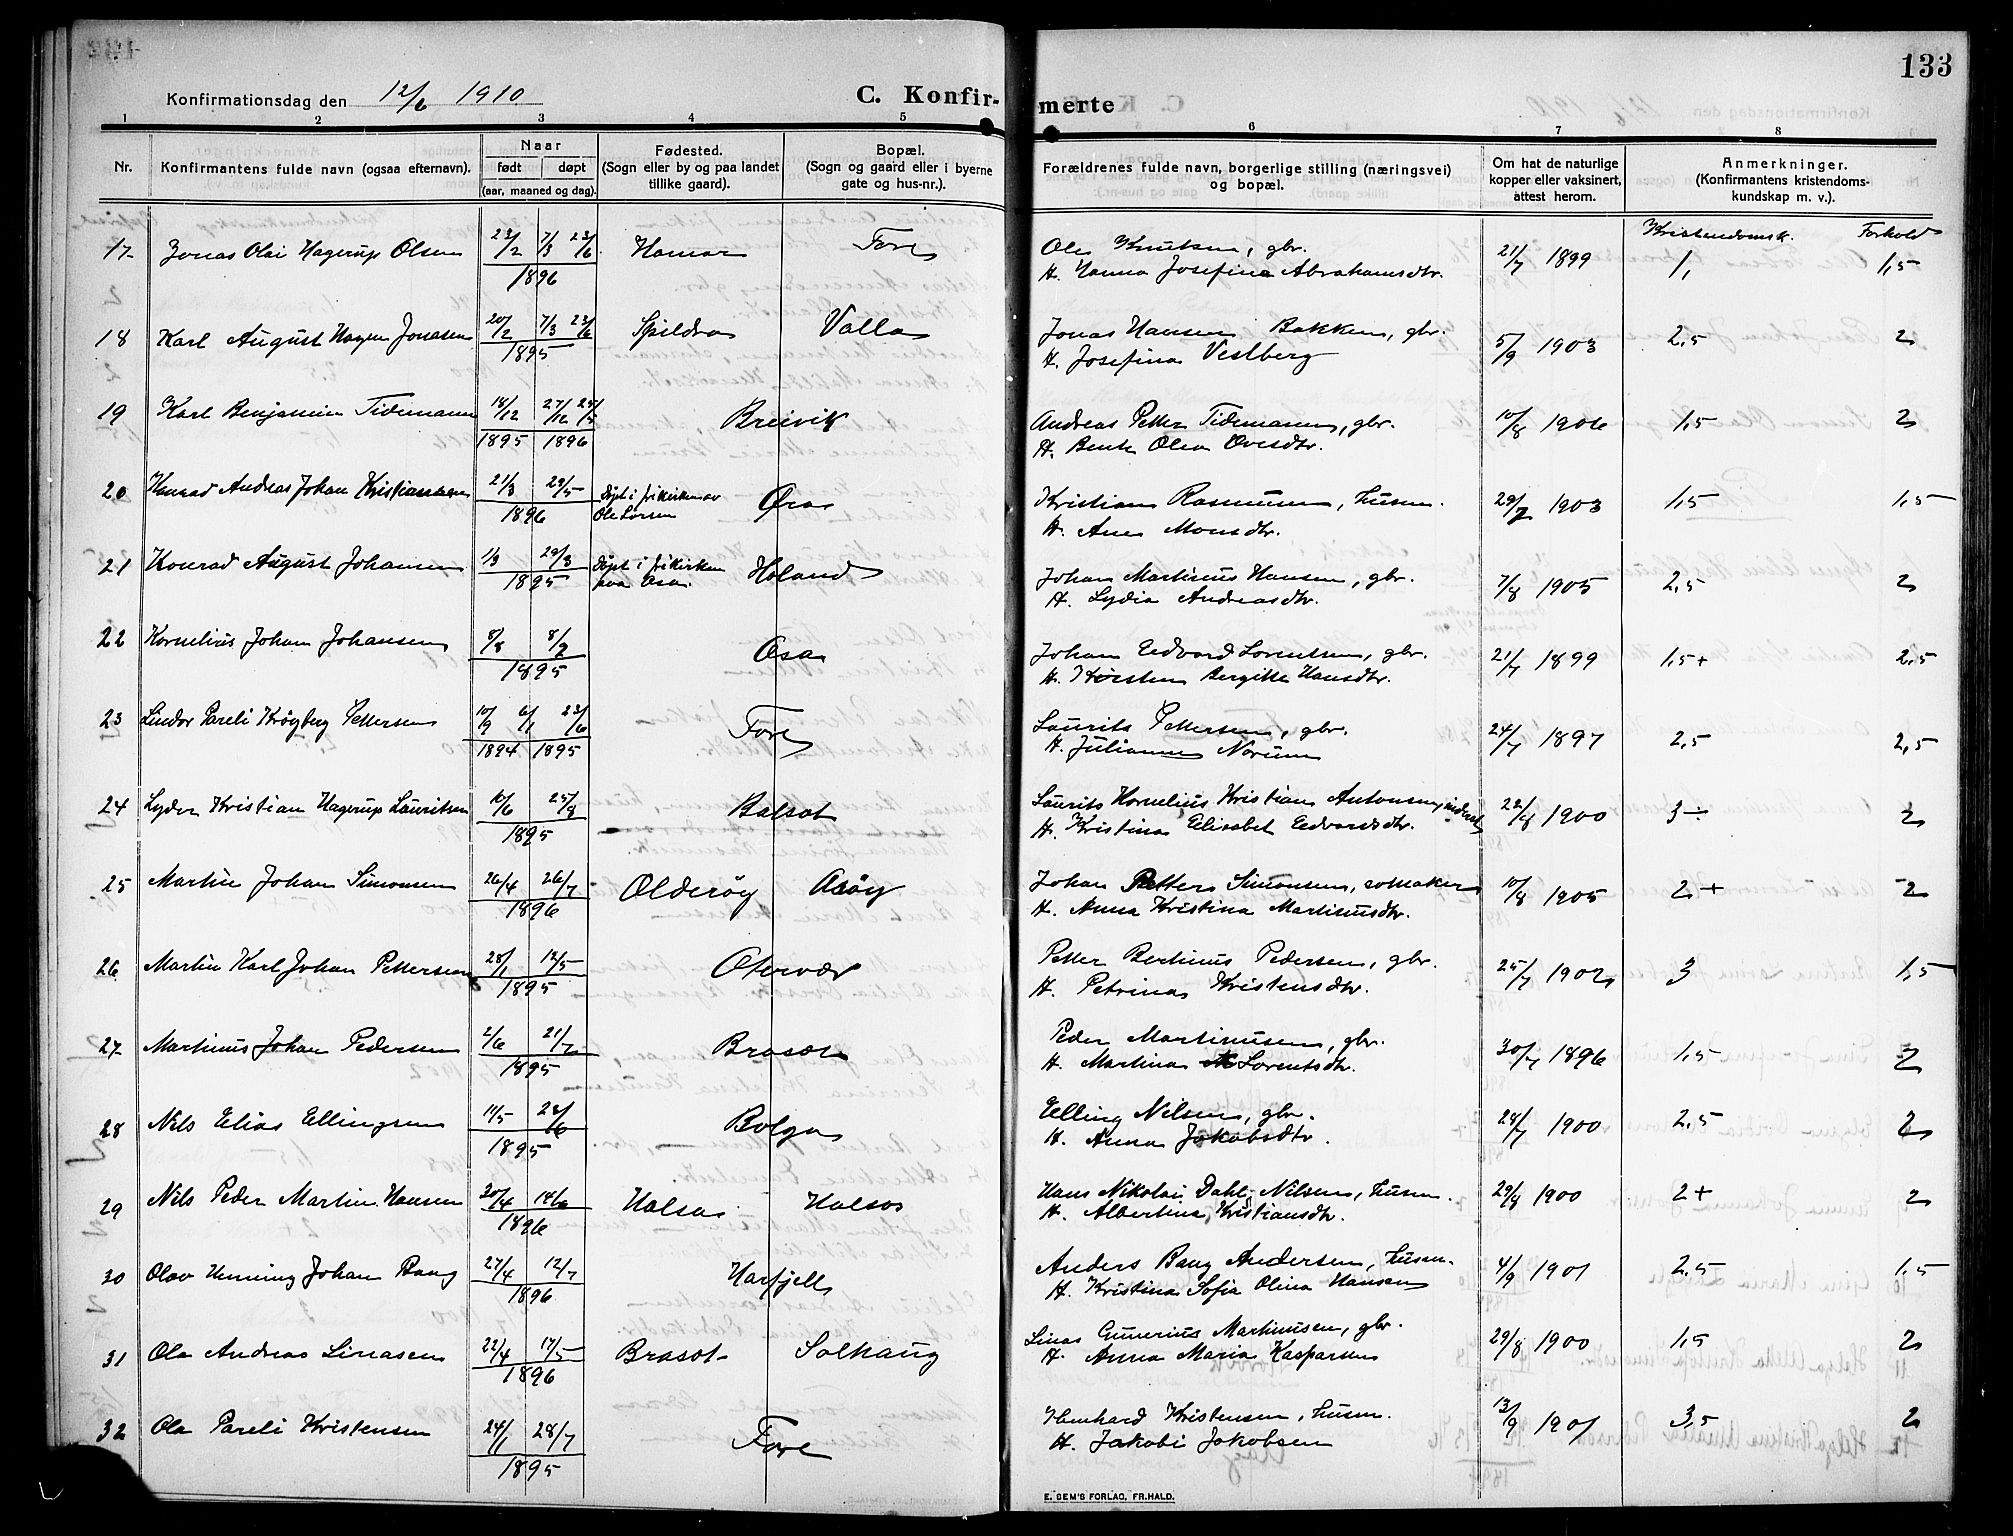 133
Konfirmationsdag den 12/6 1910
C. Konfirmerte
1 2 3 4 5 6 7 8
Nr.
Konfirmantens fulde navn (ogsaa efternavn).
Naar
født døpt
(aar, maaned og dag).
Fødested.
(Sogn eller by og paa landet
tillike gaard).
Bopæl.
(Sogn og gaard eller i byerne
gate og hus-nr.).
Forældrenes fulde navn, borgerlige stilling (næringsvei)
og bopæl.
Om hat de naturlige
kopper eller vaksinert,
attest herom.
Anmerkninger.
(Konfirmantens kristendoms-
kundskap m. v.).
Kristendomsk. Forhold
17 Jonas Olai Hagerup Olsen 23/2 7/3 23/6 Hamar Fore Ole Knutsen, gbr. 21/7 1899 1, 1,5
1896 H. Hanna Josefine Abrahamsdtr.
18 Karl August Hagen Jonassen 20/2 7/3 23/6 Spildra Valla Jonas Hansen Bakken, gbr. 5/9 1903 2,5 2
1895 H. Josefina Vestberg
19 Karl Benjamin Tidemann 18/12 27/12 Breivik Andreas Petter Tidemann, gbr. 10/8 1906 1,5 2
1895 1896 H. Bente Olea Ovesdtr.
20 Konrad Andreas Johan Kristiansen 21/3 29/5 Døpt i frikirken av Øra Kristian Rasmussen, husm. 29/7 1903 1,5 1,5
1896 Ole Larsen H. Ane Monsdtr.
21 Konrad August Johansen 1/3 29/3 Døpt i frikirken Høland Johan Martinius Hansen, gbr. 7/8 1905 2,5 2
1895 paa Osa. H. Lydia Andreasdtr.
22 Kornelius Johan Johansen 8/8 8/2 Osa Johan Edvard Lorentsen, gbr. 21/7 1899 1,5+ 2,5
1895 H. Kirsten Bergitte Hansdtr.
23 Lindor Pareli Krøgberg Pettersen 10/9 6/1 23/6 Fore Laurits Pettersen, gbr. 24/7 1897 2,5 2,5
1894 1895 H. Julianne Norum
24 Lyder Kristian Hagerup Lauritsen 10/6 25/8 Balsot Laurits Kornelius Kristian Antonsen, inderst 22/8 1900 3÷ 2
1895 H. Kristina Elisabet Edvardsdtr.
25 Martin Johan Simonsen 26/4 26/7 Olderøy Osøy Johan Petter Simonsen, somaker 10/8 1905 2+ 2
1896 H. Anna Kristina Martinusdtr.
26 Martin Karl Johan Pettersen 28/1 12/5 Otervær Petter Bertinus Pedersen, gbr. 25/7 1902 3 1,5
1895 H. Petrina Kristensdtr.
27 Martinus Johan Pedersen 2/6 21/7 Brasøt Peder Martinusen, gbr. 30/7 1896 1,5 2
1895 H. Martina Lorentsdtr.
28 Nils Elias Ellingsen 11/5 23/6 Bolga Elling Nilsen, gbr. 24/7 1900 2,5 2
1895 H. Anna Jakobsdtr.
29 Nils Peder Martin Hansen 30/4 14/6 Halsa Halsos Hans Nikolai Dahl Nilsen, husm. 29/8 1900 2+ 2
1896 H. Albertina Kristiansdtr.
30 Olav Henning Johan Bang 27/4 12/7 Harfjell Anders Bang Andersen, husm. 4/9 1901 2,5 1,5
1896 H. Kristina Sofia Olina Hansen
31 Ola Andreas Linasen 22/4 17/5 Brasøt Solhaug Linas Gunerius Martinusen, gbr. 29/8 1900 1,5 2
1896 H. Anna Maria Kasparsen
32 Ola Pareli Kristensen 24/1 28/7 Fore Ibenhard Kristensen, husm. 13/9 1901 3,5 2
1895 H. Jakobi Jakobsen
E. SEM'S FORLAG, FR.HALD.